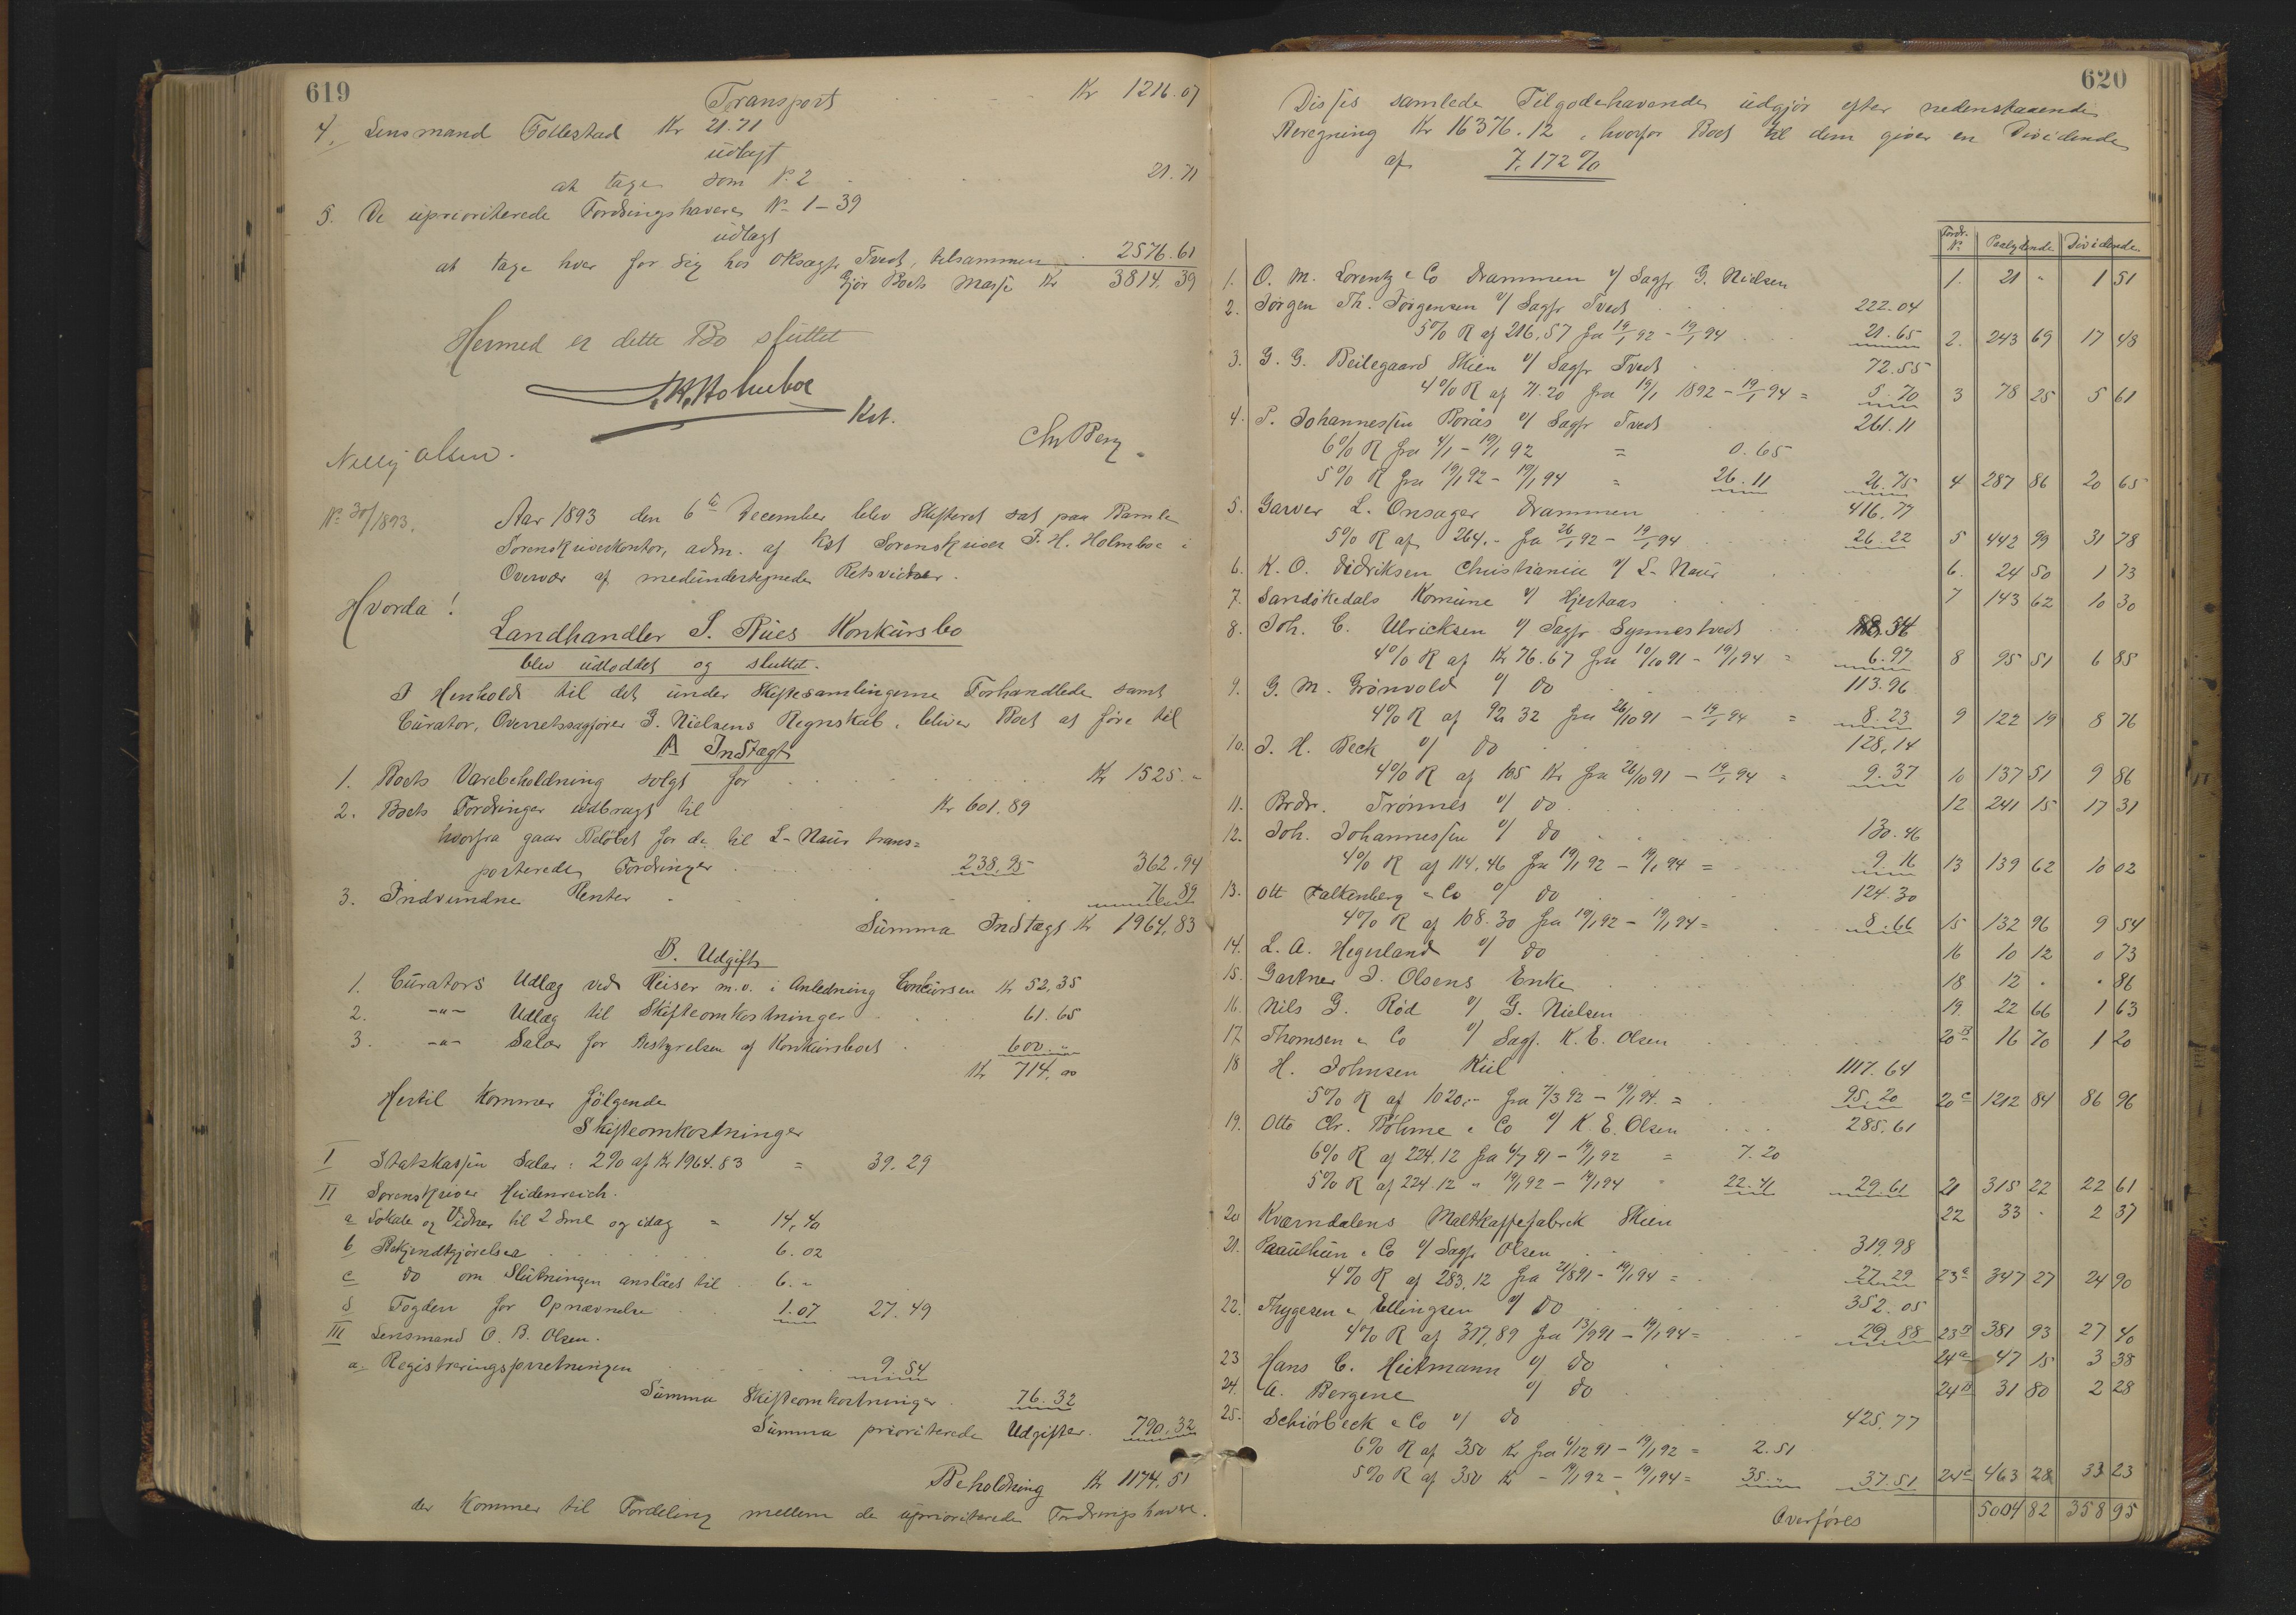 619
Transport Kr 1216.07
4. Lensmand Tollestad Kr 21.71
udlagt
at tage som No 2 21.71
5. De uprioriterede Fordringshavere No 1-39
udlagt
at tage hver for sig hos Oksagfr Tvedt, tilsammen 2576.61
Gjør Boets Masse Kr 3814.39
Hermed er dette Bo sluttet
J.H.Holmboe
Kst.
Chr Berg.
Nelly Olsen.
No 30/1893. Aar 1893 den 6te December blev Skifteret sat paa Bamle
Sorenskriverkontor, adm. af Kst Sorenskriver J. H. Holmboe i
Overvær af medundertegnede Retsvidner.
Hvorda!
Landhandler S. Rües Konkursbo
blev udloddet og sluttet.
I Henhold til det under Skiftesamlingerne Forhandlede samt
Curator, Overretssagfører G. Nielsens Regnskab, bliver Boet at føre til
A Indtægt
1. Boets Varebeholdning solgt for Kr 1525.-
2. Boets Fordringer udbragt til Kr 601.89
hvorfra gaar Beløbet for de til L. Naur trans=
porterede Fordringer 238.95 362.94
3. Indvundne Renter 76.89
Summa Indtægt Kr 1964.83
B. Udgift
1. Curators Udlæg ved Reiser m.v. i Anledning Concursen Kr 52.35
2. -"- Udlæg til Skifteomkostninger 61.65
3. -"- Salær for Bestyrelsen af Konkursboet 600.-
Kr 714.00
Hertil kommer følgende
Skifteomkostninger
I Statskassen Salær: 2% af Kr 1964.83 = 39.29
II Sorenskriver Heidenreich.
a Lokale og Vidner til 2 Sml og idag = 14.40
b Bekjendtgjørelser 6.02
c do om Slutningen anslaaet til 6.-
d Fogden for Opnævnelse 1.07 27.49
III Lensmand O. B. Olsen.
a. Registreringsforretningen 9.54
Summa Skifteomkostninger 76.32
Summa prioriterede Udgifter. 790.32
Beholdning Kr 1174.51
der kommer til Fordeling mellem de uprioriterede Fordringshavere.
620
Disses samlede Tilgodehavende udgjør efter nedenstaaende
Beregning Kr 16376.12, hvorfor Boet til dem giver en Dividende
af 7,172 %
Fordr. No Paalydende Dividende
1. O. M. Lorentz & Co Drammen v/ Sagfr G. Nielsen 1. 21 - 1 51
2. Jørgen Th. Jørgensen v/ Sagfr Tvedt 222.04
5% R af 216.57 fra 19/1 92 - 19/1 94 21.65 2. 243 69 17 48
3. G. G. Beilegaard Skien v/ Sagfr Tvedt 72.55
4% R af 71.20 fra 19/1 1892 - 19/1 94 = 5.70 3 78 25 5 61
4. P. Johannessen Borås v/ Sagfr Tvedt 261.11
6% R fra 4/1 - 19/1 92 = 0.65
5% R fra 19/1 92 - 19/1 94 = 26.11 26.75 4 287 86 20 65
5. Garver L. Onsager Drammen 416.77
5% R af 264.- fra 26/1 92 - 19/1 94 26.22 5 442 99 31 78
6. K. O. Didriksen Christiania v/ L. Naur 6. 24 50 1 73
7. Sandøkedals Komune v/ Hjertaas 7 143 62 10 30
8. Joh. C. Ulricksen v/ Sagfr Synnestvedt 88.54
4% R af Kr 76.67 fra 10/10 91 - 19/1 94 = 6.97 8 95 51 6 85
9. G. M. Grønvold v/ do 113.96
4% R af 92.32 fra 26/10 91 - 19/1 94 = 8.23 9 122 19 8 76
10. J. H. Beck v/ do 128.14
4% R af 105 Kr fra 26/10 91 - 19/1 94 = 9.37 10 137 51 9 86
11. Brdr. Trømnes v/ do 12 241 15 17 31
12. Joh. Johannessen v/ do 130.46
4% R af 114.46 fra 19/1 92 - 19/1 94 = 9.16 13 139 62 10 02
13. Ott Faltenberg & Co v/ do 124.30
4% R af 108.30 fra 19/1 92 - 19/1 94 = 8.66 15 132 96 9 54
14. L. A. Hegerland v/ do 16 10 12 0 73
15. Gartner J. Olsens Enke 18 12 - - 86
16. Nils G. Rød v/ G. Nielsen 19. 22 66 1 63
17. Thomsen & Co v/ Sagf. K. E. Olsen 20b 16 70 1 20
18 H. Johnsen Kiil 1117.64
5% R af 1020.- fra 7/3 92 - 19/1 94. = 95.20 20c 1212 84 86 96
19. Otto Chr. Bøhme & Co v/ K. E. Olsen 285.61
6% R af 224.12 fra 6/7 91 - 19/1 92 = 7.20
5% R af 224.12 " 19/1 92 - 19/1 94 " 22.41 29.61 21 315 22 22 61
20 Kværndalens Maltkaffefabrik Skien 22 33 - 2 37
21. Paauthun & Co v/ Sagfr Olsen 319.98
4% R af 283.12 fra 21/8 91 - 19/1 94 = 27.29 23a 347 27 24 90
22. Thygesen & Ellingsen v/ do 352.05
4% R af 317.89 fra 13/9 91 - 19/1 94 = 29.88 23b 381 93 27 40
23 Hans C. Heitmann v/ do 24a 47 15 3 38
24. A. Bergene v/ do 24b 31 80 2 28
25. Schiørbeck & Co v/ do 425.77
6% R af 350 Kr fra 6/12 91 - 19/1 92 = 2.51
5% R af 350 Kr - 19/1 92 - 19/1 94 = 35.- 37.51 24c 463 28 33 23
Overføres 5004 82 358 95